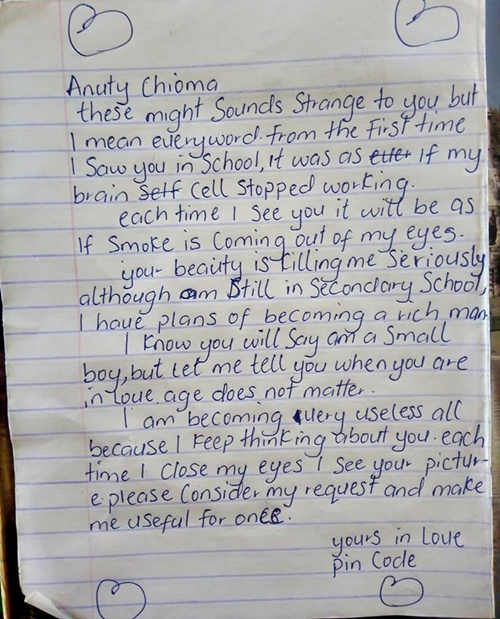 Anuty Chioma
these might Sounds Strange to you but
I mean everyword from the first time
I Saw you in School, it was as if my
brain Self Cell Stopped working.
each time I See you it will be as
If Smoke is Coming out of my eyes.
your beauty is killing me Seriously
although am Still in Secondary School,
I have plans of becoming a rich man
I know you will Say am a Small
boy, but let me tell you when you are
in love age does not matter.
I am becoming very useless all
because I keep thinking about you. each
time I close my eyes I see your pictur-
e please Consider my request and make
me useful for once.
yours in Love
Pin Code